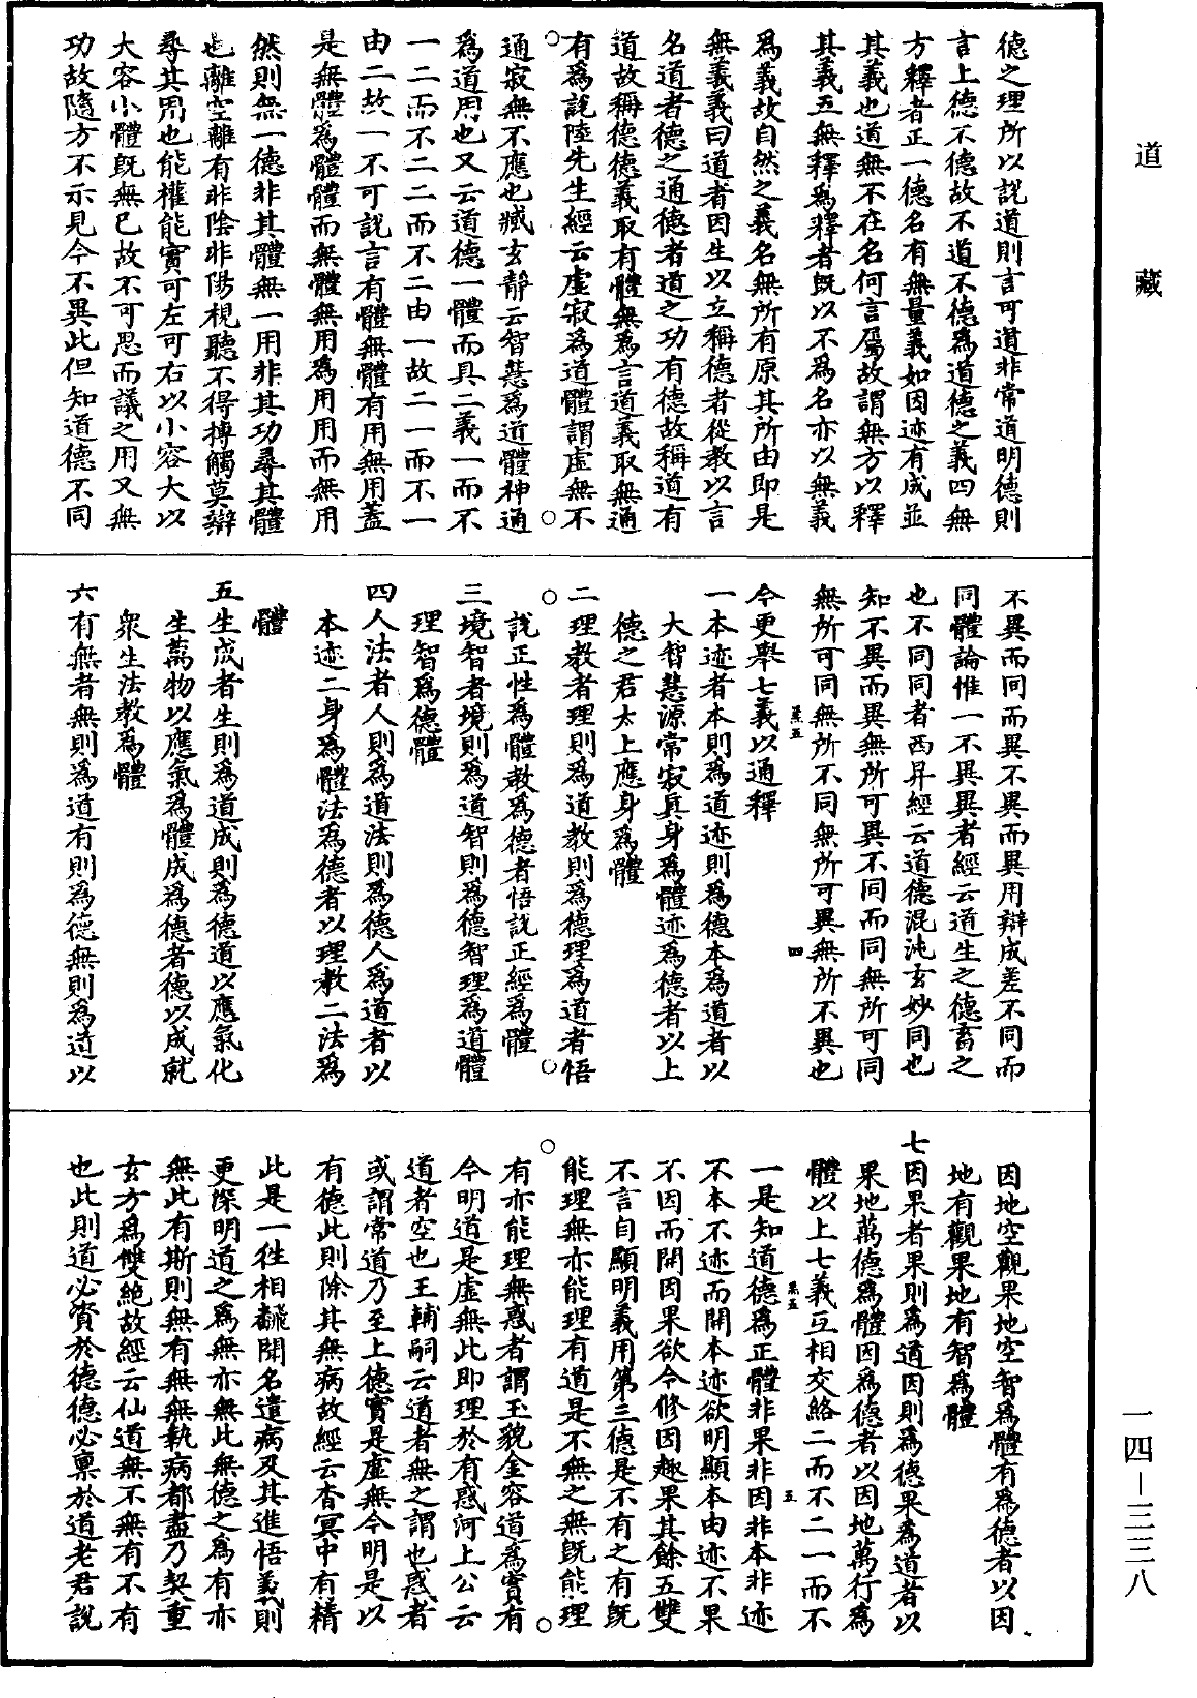 道藏
德之理所以說道則言可道非常道明德則
言上德不德故不道不德爲道德之義四無
方釋者正一德名有無量義如因迹有成並
其義也道無不在名何言屬故謂無方以釋
其義五無釋爲釋者既以不爲名亦以無義
爲義故自然之義名無所有原其所由即是
無義義曰道者因生以立稱德者從教以言
名道者德之通德者道之功有德故稱道有
道故稱德德義取有體無爲言道義取無通
有爲說陸先生經云虛寂爲道體謂虛無不
通寂無不應也臧玄靜云智慧爲道體神通
爲道用也又云道德一體而具二義一而不
一二而不二二而不二由一故二一而不一
由二故一不可說言有體無體有用無用蓋
是無體爲體體而無體無用爲用用而無用
然則無一德非其體無一用非其功尋其體
也離空離有非陰非陽視聽不得搏觸莫辯
尋其用也能權能實可左可右以小容大以
大容小體既無已故不可思而議之用又無
功故隨方不示見今不異此但知道德不同
不異而同而異不異而異用辯成差不同而
同體論惟一不異異者經云道生之德畜之
也不同同者西昇經云道德混沌玄妙同也
知不異而異無所可異不同而同無所可同
無所可同無所不同無所可異無所不異也
今更舉七義以通釋
一本迹者本則爲道迹則爲德本爲道者以
大智慧源常寂真身爲體迹爲德者以上
德之君太上應身爲體
二理教者理則爲道教則爲德理爲道者悟
說正性爲體教爲德者悟說正經爲體
三境智者境則爲道智則爲德智理爲道體
理智爲德體
四人法者人則爲道法則爲德人爲道者以
本迹二身爲體法爲德者以理教二法爲
體
五生成者生則爲道成則爲德道以應氣化
生萬物以應氣爲體成爲德者德以成就
衆生法教爲體
六有無者無則爲道有則爲德無則爲道以
因地空觀果地空智爲體有爲德者以因
地有觀果地有智爲體
七因果者果則爲道因則爲德果爲道者以
果地萬德爲體因爲德者以因地萬行爲
體以上七義互相交絡二而不二一而不
一是知道德爲正體非果非因非本非迹
不本不迹而開本迹欲明顯本由迹不果
不因而開因果欲令修因趣果其餘五雙
不言自顯明義用第三德是不有之有既
能理無亦能理有道是不無之無既能理
有亦能理無惑者謂玉貌金容道爲實有
今明道是虛無此即理於有惑河上公云
道者空也王輔嗣云道者無之謂也惑者
或謂常道乃至上德實是虛無今明是以
有德此則除其無病故經云杳冥中有精
此是一往相翻開名遣病及其進悟義則
更深明道之爲無亦無此無德之爲有亦
無此有斯則無有無無執病都盡乃契重
玄方爲雙絶故經云仙道無不無有不有
也此則道必資於德德必稟於道老君說
一四－三三八